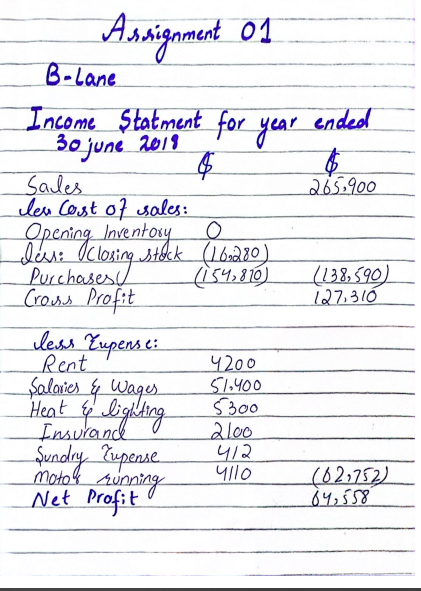 Assignment 01
B-Lane
Income Statment for year ended
30 june 2018
$ $
Sales 265,900
less Cost of sales:
Opening Inventory 0
less: Closing stock (16,280)
Purchases (154,870) (138,590)
Gross Profit 127,310
less Expense:
Rent 4200
Salaries & Wages 51,400
Heat & lighting 5300
Insurance 2100
Sundry Expense 412
motor running 4110 (62,752)
Net Profit 64,558